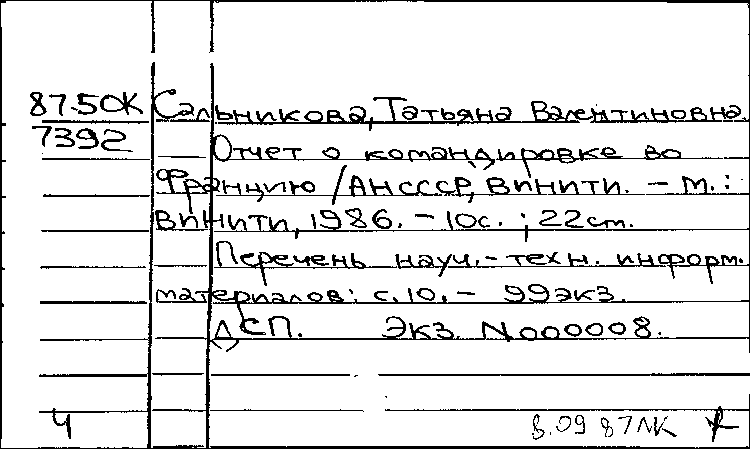 87.50К Сальникова, Татьяна Валентиновна
7392 Отчет о командировке во
Францию / АНСССР, ВИНИТИ. - М. :
ВИНИТИ, 1986. - 10с. ; 22 см.
Перечень науч.- техн. информ.
материалов: с. 10. - 99 экз.
ДСП. Экз. N000008.
4 8.09 87